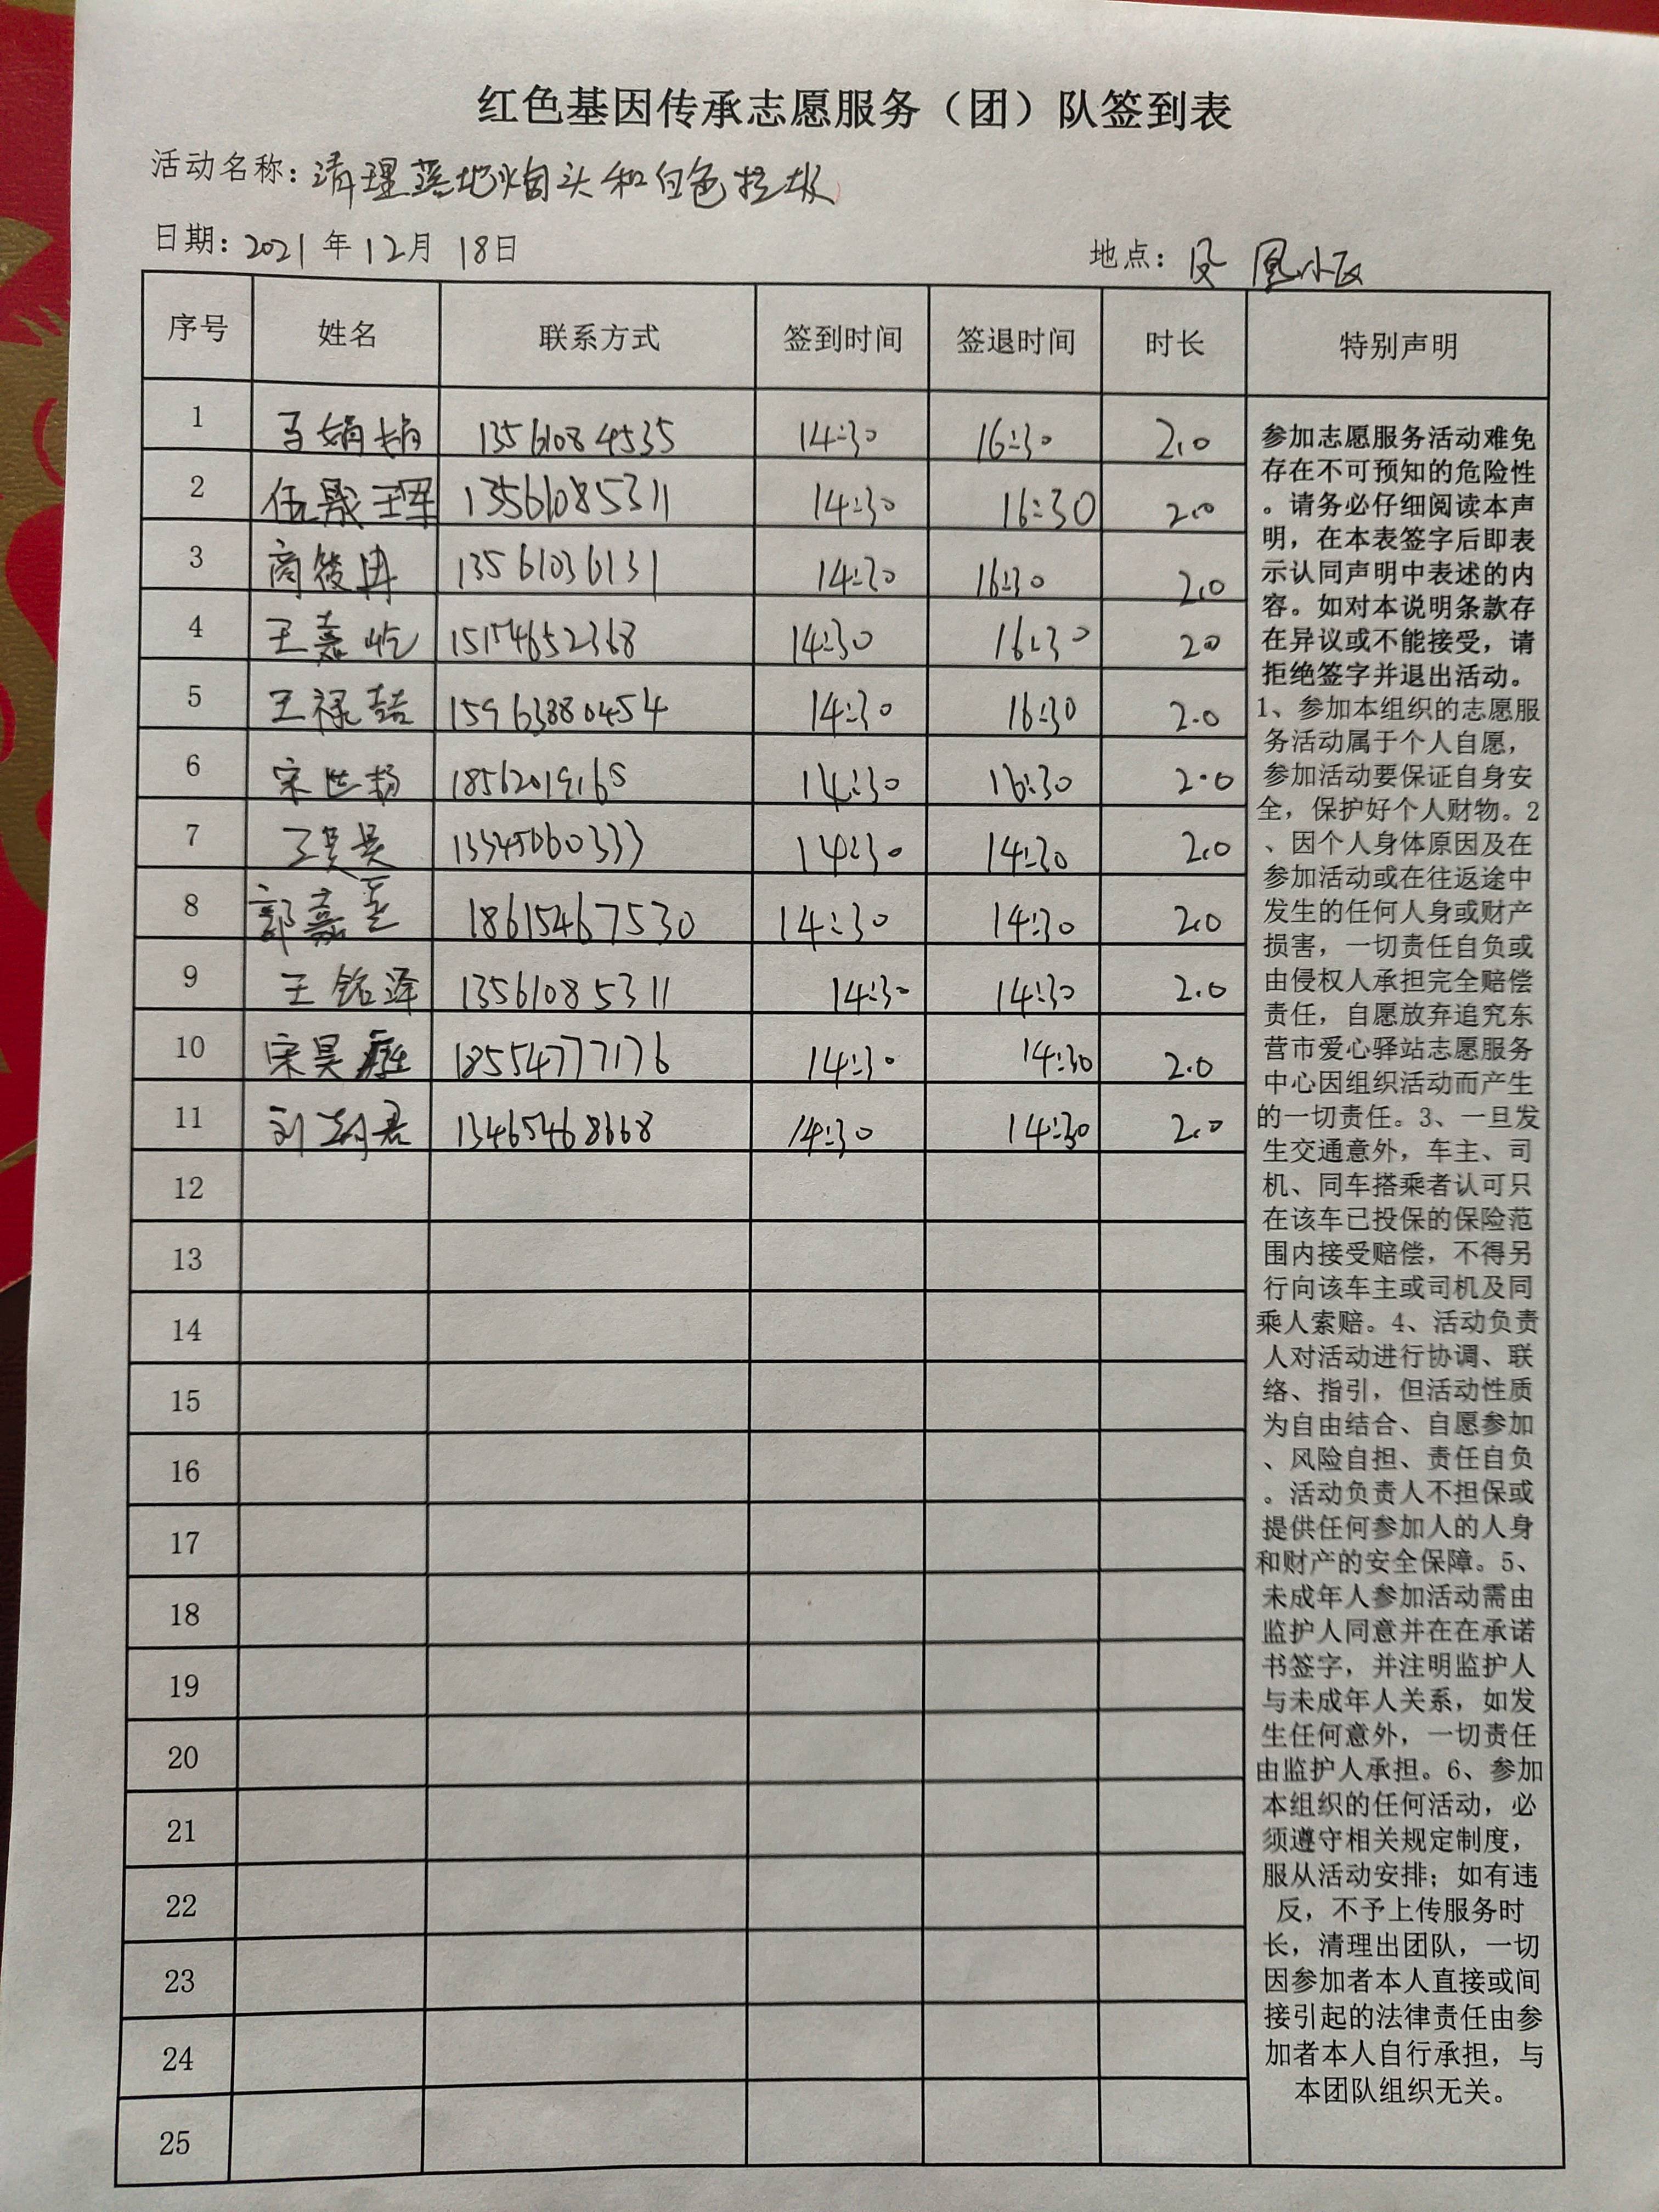 红色基因传承志愿服务（团）队签到表
活动名称：清理落地烟头和白色垃圾
日期：2021年12月18日 地点：凤凰小区
序号 姓名 联系方式 签到时间 签退时间 时长 特别声明
1 13561084535 14:30 16:30 2.0
2 13561085311 14:30 16:30 2.0
3 13561036131 14:30 16:30 2.0
4 王嘉屹 14:30 16:30 2.0
5 王禄喆 15963880454 14:30 16:30 2.0
6 宋世扬 14:30 16:30 2.0
7 14:30 14:30 2.0
8 郭嘉 18615467530 14:30 14:30 2.0
9 王铭泽 13561085311 14:30 14:30 2.0
10 宋昊 18554777176 14:30 14:30 2.0
11 刘 君 13465468668 14:30 14:30 2.0
12
13
14
15
16
17
18
19
20
21
22
23
24
25
参加志愿服务活动难免
存在不可预知的危险性
。请务必仔细阅读本声
明，在本表签字后即表
示认同声明中表述的内
容。如对本说明条款存
在异议或不能接受，请
拒绝签字并退出活动。
1、参加本组织的志愿服
务活动属于个人自愿，
参加活动要保证自身安
全，保护好个人财物。2
、因个人身体原因及在
参加活动或在往返途中
发生的任何人身或财产
损害，一切责任自负或
由侵权人承担完全赔偿
责任，自愿放弃追究东
营市爱心驿站志愿服务
中心因组织活动而产生
的一切责任。3、一旦发
生交通意外，车主、司
机、同车搭乘者认可只
在该车已投保的保险范
围内接受赔偿，不得另
行向该车主或司机及同
乘人索赔。4、活动负责
人对活动进行协调、联
络、指引，但活动性质
为自由结合、自愿参加
、风险自担、责任自负
。活动负责人不担保或
提供任何参加人的人身
和财产的安全保障。5、
未成年人参加活动需由
监护人同意并在在承诺
书签字，并注明监护人
与未成年人关系，如发
生任何意外，一切责任
由监护人承担。6、参加
本组织的任何活动，必
须遵守相关规定制度，
服从活动安排；如有违
反，不予上传服务时
长，清理出团队，一切
因参加者本人直接或间
接引起的法律责任由参
加者本人自行承担，与
本团队组织无关。